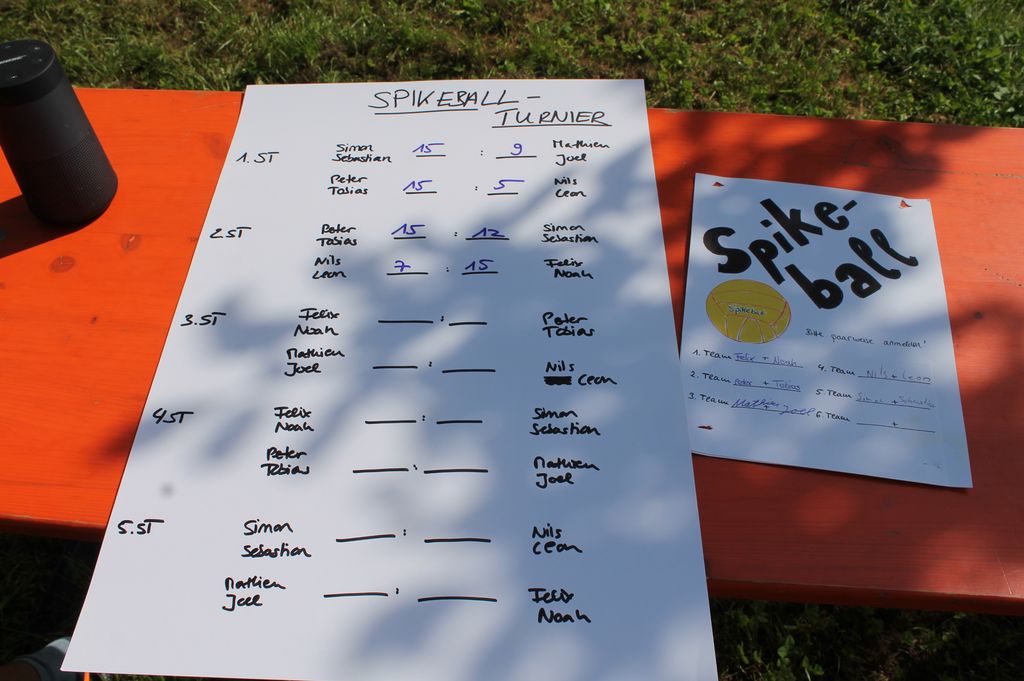 SPIKEBALL-
TURNIER
1.ST Simon Sebastian 15 : 9 Mathien Joel
Peter Tobias 15 : 5 Nils Leon
2.ST Peter Tobias 15 : 12 Simon Sebastian
Nils Leon 7 : 15 Felix Noah
3.ST Felix Noah : Peter Tobias
Mathien Joel : Nils Leon
4.ST Felix Noah : Simon Sebastian
Peter Tobias : Mathien Joel
5.ST Simon Sebastian : Nils Leon
Mathien Joel : Felix Noah
Spike-
ball
Spikeball
Bitte paarweise anmelden!
1. Team Felix + Noah
2. Team Peter + Tobias
3. Team Mathien + Joel
4. Team Nils + Leon
5. Team Simon + Sebastian
6. Team +